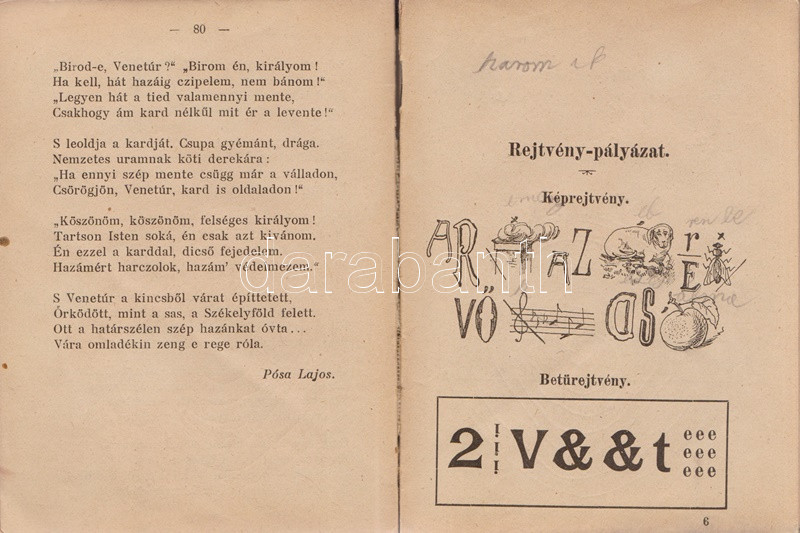 — 80 —
„Birod-e, Venetúr?“ „Birom én, királyom!
Ha kell, hát hazáig czipelem, nem bánom!“
„Legyen hát a tied valamennyi mente,
Csakhogy ám kard nélkűl mit ér a levente!“
S leoldja a kardját. Csupa gyémánt, drága.
Nemzetes uramnak köti derekára:
„Ha ennyi szép mente csügg már a válladon,
Csörögjön, Venetúr, kard is oldaladon!“
„Köszönöm, köszönöm, felséges királyom!
Tartson Isten soká, én csak azt kivánom.
Én ezzel a karddal, dicső fejedelem.
Hazámért harczolok, hazám' védelmezem.“
S Venetúr a kincsből várat építtetett,
Őrködött, mint a sas, a Székelyföld felett.
Ott a határszélen szép hazánkat óvta...
Vára omladékin zeng e rege róla.
Pósa Lajos.
három
Rejtvény-pályázat.
Képrejtvény.
AR AZ r E
VŐ AS
Betürejtvény.
2 ! ! ! V&&t eee eee eee
6
darabanth